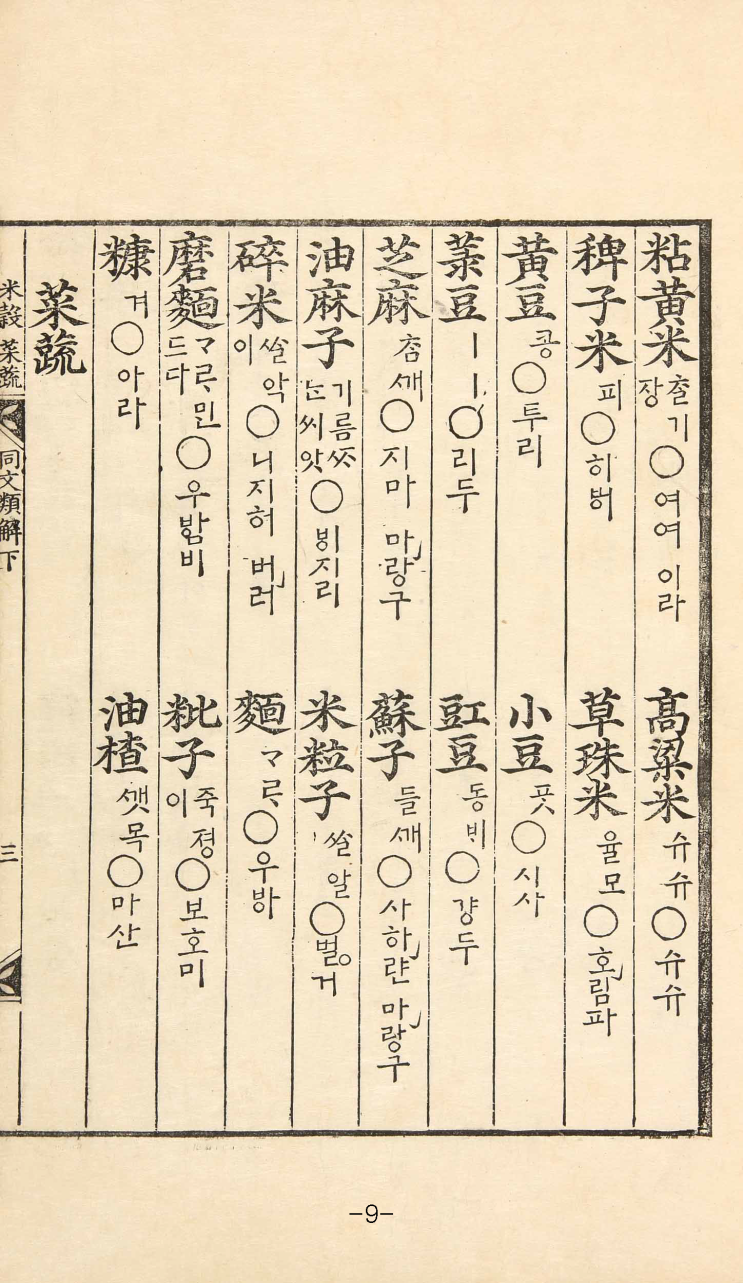 粘黃米 출장기○여여 이라
高粱米 슈슈○슈슈
稗子米 피○히버
草珠米 율모○호림파
黃豆 콩○투리
小豆 풋○시사
菉豆 ㅣㅣ○리두
豇豆 동뷔○걍두
芝麻 ᄎᆞᆷᄭᅢ○지마 마랑구
蘇子 들ᄭᅢ○사하랸 마랑구
油麻子 기름ᄶᆞ는씨앗○빙지리
米粒子 ᄡᆞᆯ알○벌거
碎米 ᄡᆞᆯ악이○니지허 버러
麵 ᄀᆞᄅᆞ○우바
磨麵 ᄀᆞᄅᆞ민드다○우밤비
粃子 죽졍이○보호미
糠 겨○아라
油楂 ᄭᅢᆺ목○마산
菜蔬
米穀 菜蔬
同文類解下
三
-9-